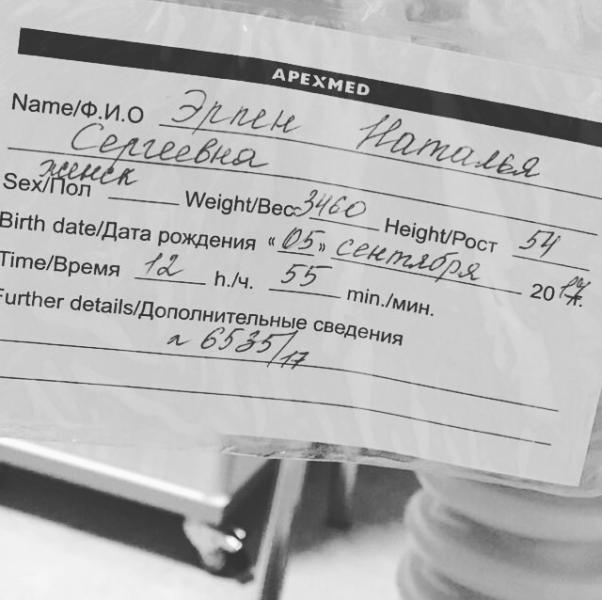 APEXMED
Name/Ф.И.О Эрпен Наталья
Сергеевна
Sex/Пол женск Weight/Вес 3460 Height/Рост 54
Birth date/Дата рождения « 05 » сентября 2017г.
Time/Время 12 h./ч. 55 min./мин.
Further details/Дополнительные сведения
л 6535/17